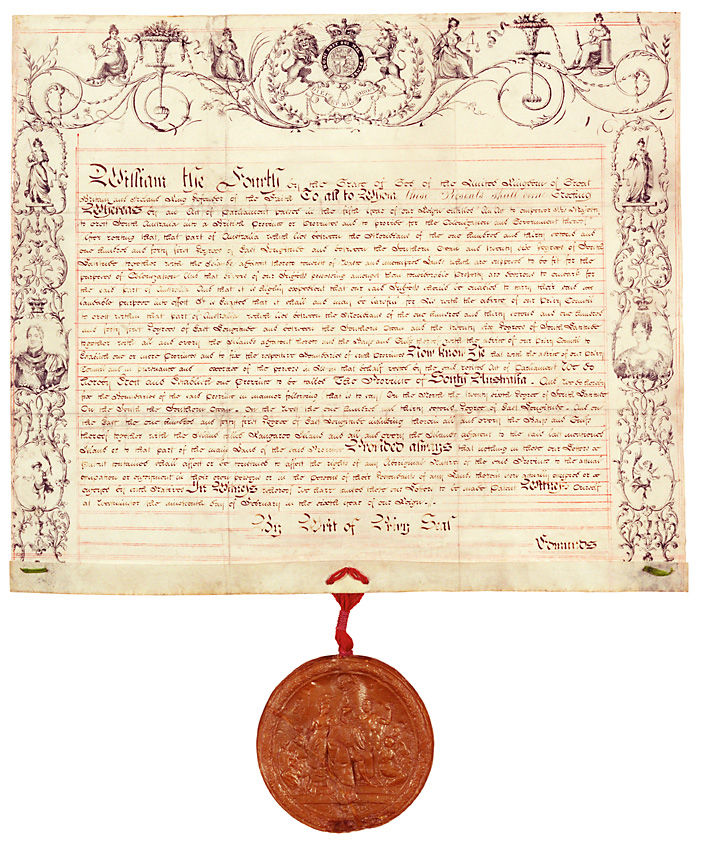 William the Fourth by the Grace of God of the United Kingdom of Great
Britain and Ireland King Defender of the Faith To all to Whom these Presents shall come Greeting
Whereas by an Act of Parliament passed in the fifth year of our Reign entitled An Act to empower His Majesty
to erect South Australia into a British Province or Provinces and to provide for the Colonization and Government thereof
After reciting that that part of Australia which lies between the Meridians of the one hundred and thirty second and
one hundred and forty first Degrees of East Longitude and between the Southern Ocean and twenty six Degrees of South
Latitude together with the Islands adjacent thereto consists of Waste and unoccupied Lands which are supposed to be fit for the
purposes of Colonization And that divers of our Subjects possessing amongst them considerable Property are desirous to embark for
the said part of Australia And that it is highly expedient that our said Subjects should be enabled to carry their said
laudable purposes into effect It is Enacted that it shall and may be lawful for Us with the advice of our Privy Council
to erect within that part of Australia which lies between the Meridians of the one hundred and thirty second and one hundred
and forty first Degrees of East Longitude and between the Southern Ocean and the twenty six Degrees of South Latitude
together with all and every the Islands adjacent thereto and the Bays and Gulfs thereof with the advice of our Privy Council to
Establish one or more Provinces and to fix the respective Boundaries of such Provinces Now Know Ye that with the advice of our Privy
Council and in pursuance and exercise of the powers in Us in that behalf vested by the said recited Act of Parliament We do
hereby Erect and Establish one Province to be called The Province of South Australia. And we do hereby
fix the Boundaries of the said Province in manner following that is to say On the North the twenty sixth Degree of South Latitude
On the South the Southern Ocean. On the West the one hundred and thirty second Degree of East Longitude. And on
the East the one hundred and forty first Degree of East Longitude including therein all and every the Bays and Gulfs
thereof together with the Island called Kangaroo Island and all and every the Islands adjacent to the said last mentioned
Island or to that part of the main Land of the said Province Provided always that nothing in these our Letters
Patent contained shall affect or be construed to affect the rights of any Aboriginal Natives of the said Province to the actual
occupation or enjoyment in their own persons or in the Persons of their Descendants of any Lands therein now actually occupied or
enjoyed by such Natives In Witness whereof We have caused these our Letters to be made Patent Witness Ourself
at Westminster the nineteenth day of February in the sixth year of our Reign.
By Writ of Privy Seal
Edmunds